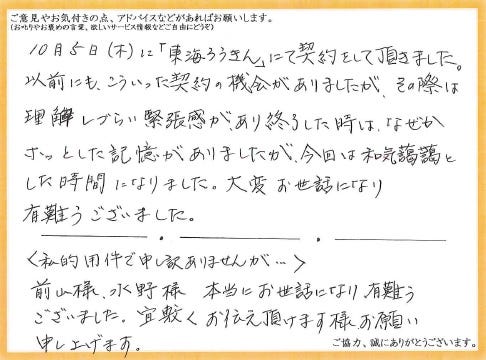 ご意見やお気付きの点、アドバイスなどがあればお願いします。
(お叱りやお褒めの言葉、欲しいサービス情報などご自由にどうぞ)
10月5日(木)に「東海ろうきん」にて契約をして頂きました。
以前にも、こういった契約の機会がありましたが、その際は
理解しづらい緊張感があり終了した時は、なぜか
ホッとした記憶がありましたが、今回は和気藹藹と
した時間になりました。大変お世話になり
有難うございました。
<私的用件で申し訳ありませんが…>
前山様、水野様 本当にお世話になり有難う
ございました。宜敷くお伝え頂けます様お願い
申し上げます。
ご協力、誠にありがとうございます。